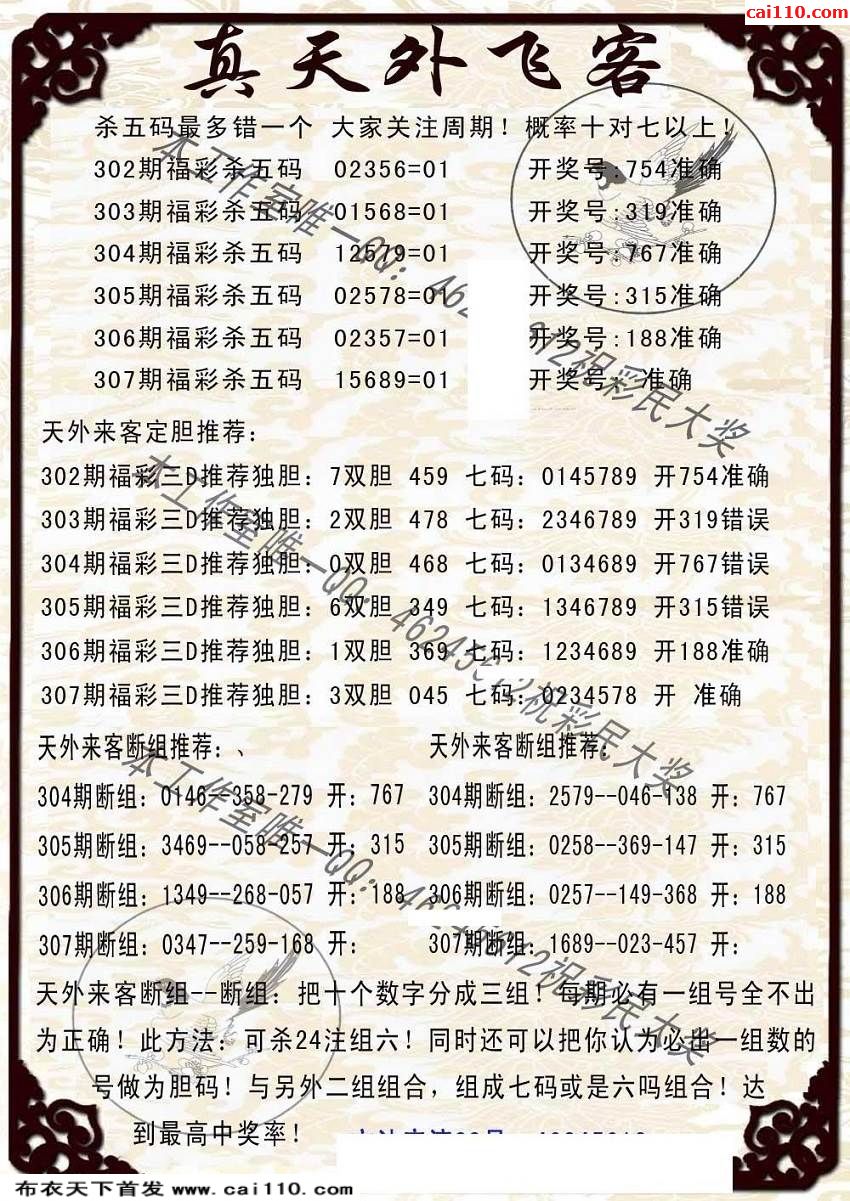 cai110.com
真天外飞客
杀五码最多错一个 大家关注周期！概率十对七以上！
302期福彩杀五码 02356=01 开奖号:754准确
303期福彩杀五码 01568=01 开奖号:319准确
304期福彩杀五码 12579=01 开奖号:767准确
305期福彩杀五码 02578=01 开奖号:315准确
306期福彩杀五码 02357=01 开奖号:188准确
307期福彩杀五码 15689=01 开奖号: 准确
天外来客定胆推荐：
302期福彩三D推荐独胆：7双胆 459 七码：0145789 开754准确
303期福彩三D推荐独胆：2双胆 478 七码：2346789 开319错误
304期福彩三D推荐独胆：0双胆 468 七码：0134689 开767错误
305期福彩三D推荐独胆：6双胆 349 七码：1346789 开315错误
306期福彩三D推荐独胆：1双胆 369 七码：1234689 开188准确
307期福彩三D推荐独胆：3双胆 045 七码：0234578 开 准确
天外来客断组推荐：、 天外来客断组推荐：
304期断组：0146--358-279 开：767 304期断组：2579--046-138 开：767
305期断组：3469--058-257 开：315 305期断组：0258--369-147 开：315
306期断组：1349--268-057 开：188 306期断组：0257--149-368 开：188
307期断组：0347--259-168 开： 307期断组：1689--023-457 开：
天外来客断组--断组：把十个数字分成三组！每期必有一组号全不出
为正确！此方法：可杀24注组六！同时还可以把你认为必出一组数的
号做为胆码！与另外二组组合，组成七码或是六吗组合！达
到最高中奖率！
本工作室唯一QQ：462 612祝彩民大奖
本工作室唯一QQ：46245612祝彩民大奖
本工作室唯一QQ：462 612祝彩民大奖
布衣天下首发 www.cai110.com